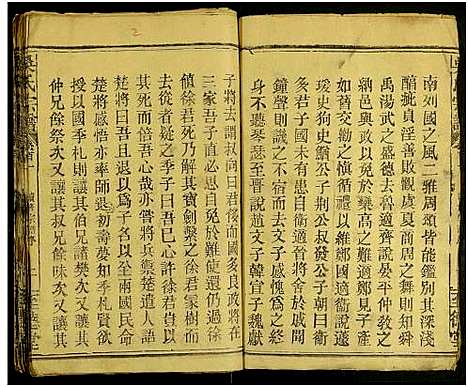 吳氏宗譜
南列國之風二雅周頌皆能鑑別其深淺
貞淫善敗觀虞夏商周之舞則知舜
禹湯武之盛德去齊適齊說晏平仲使之
納邑與政以免於欒高之難適鄭見子產
如舊交勸以慎循禮以維鄭國適衞說蘧
瑗史狗史鰌公子荆公叔發公子朝曰衞
多君子國未有患適晉將舍於戚聞
鐘聲則譏之不宿而去文子感愧爲之終
身不聽琴瑟至晋說趙文子韓宣子魏獻
至德堂
子將去謂叔向曰君侈而國多良政將在
三家吾子直必思自免於難使還仍過徐
徐君死乃解其寳劍繫之徐君冢樹而
去從者疑之季子曰吾已心許徐君豈以
死背吾心哉亦嘗將兵禦楚遣人語
楚將曰吾與且退兵以名無至兩國民命
楚將感悟亦率師退初壽夢知季札賢欲
授以國季札則讓其伯兄諸樊次又讓其
仲兄餘祭次又讓其叔兄餘昧次又讓其
吳氏宗譜
卷首一
至德堂
2